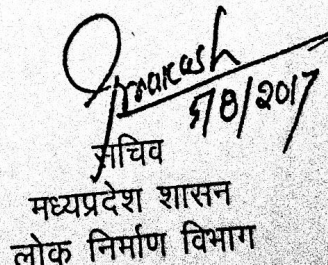 5/8/2017
सचिव
मध्यप्रदेश शासन
लोक निर्माण विभाग